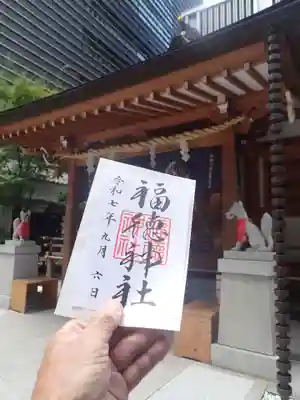 福徳神社
令和七年九月六日